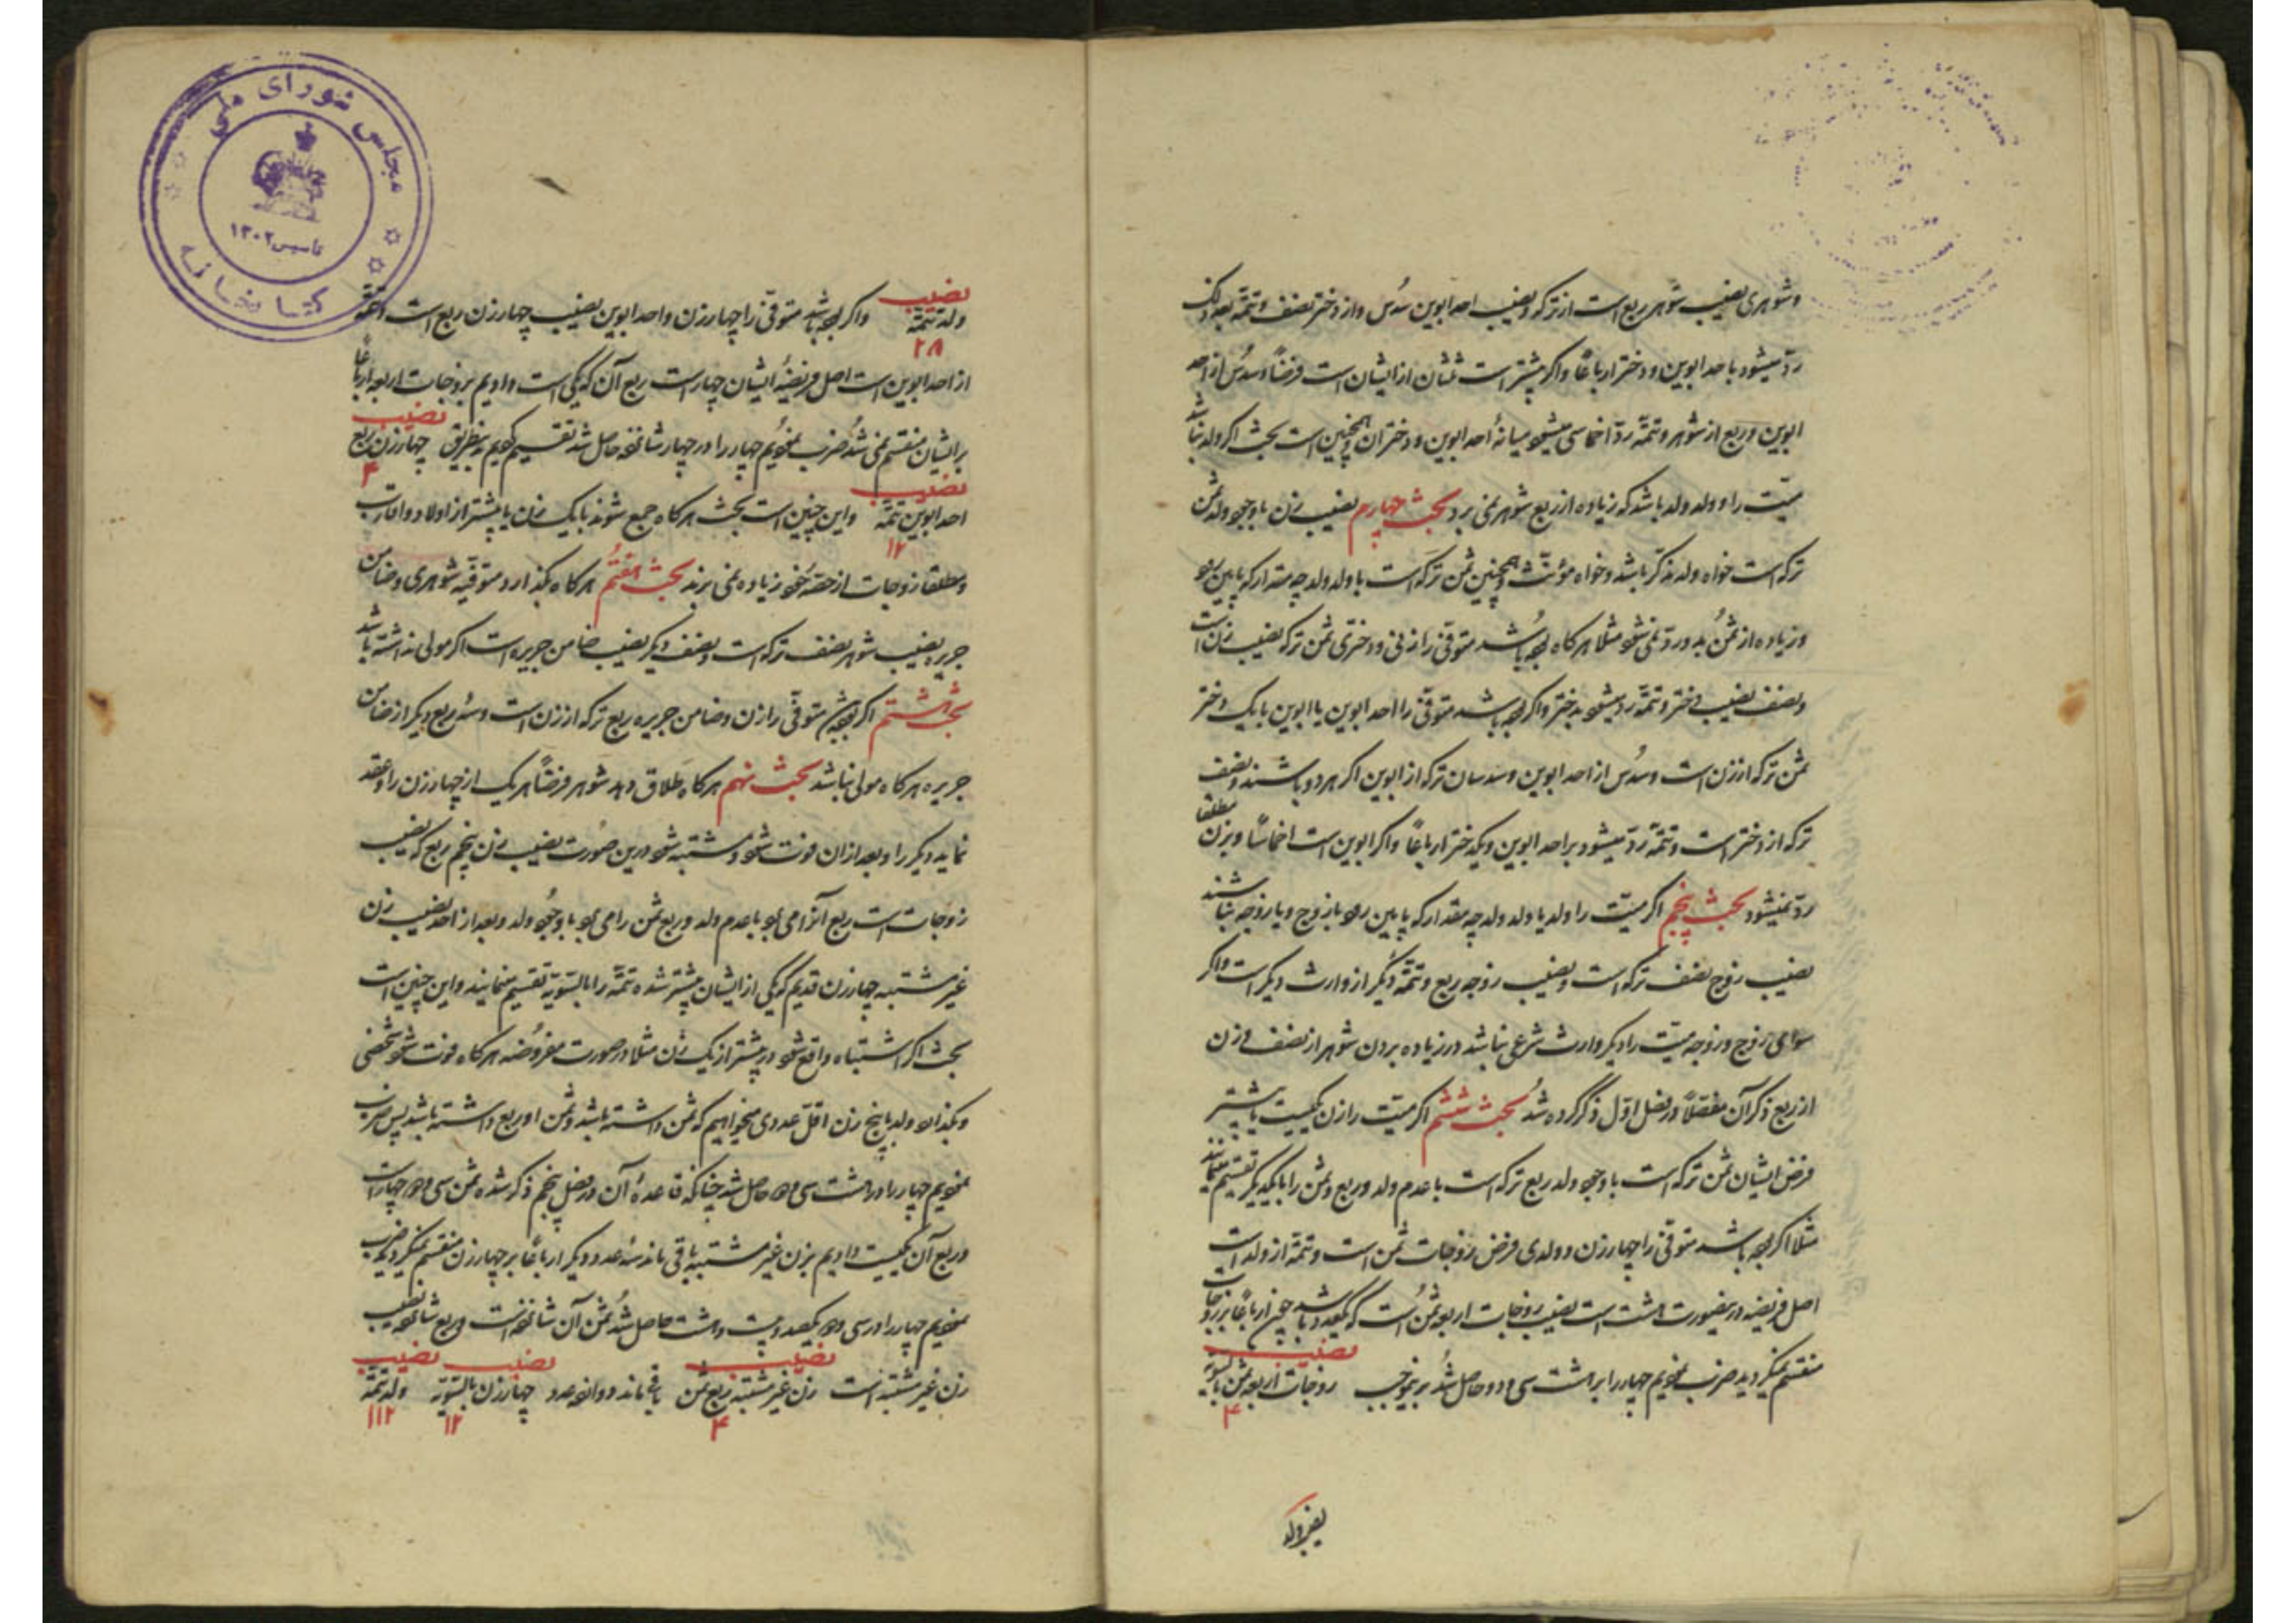 و شوهری نصیب شوهر ربع است از ترکه و نصیب احد ابوین سُدس و از دختر نصف و تتمّه بعد ذلک
ردّ میشود باحد ابوین و دختر ارباعًا و اکر پیشتر است ثلثان از ایشان است فرضًا و سدُس از احد
ابوین و ربع از شوهر و تتمّه ردّ اخماسی میشود میانهٔ احد ابوین و دختران و همچنین است بحث اکر ولد نباشد
میّت را و ولد ولد باشد که زیاده از ربع شوهر نمی برد بحث چهارم نصیب زن با وجود ولد ثمن
ترکه است خواه ولد مذکّر باشد و خواه مؤنّث و همچنین ثمن ترکه است با ولد ولد چه مقدار که پایین رود
و زیاده از ثمن بدو ردّ نمی شود مثلا هر کاه بوده باشد متوفّی را زنی و دختری ثمن ترکه نصیب زن است
و نصف نصیب دختر و تتمّه ردّ میشود بدختر و اکر بوده باشد متوفّی را احد ابوین یا ابوین با یک دختر
ثمن ترکه از زن است و سدُس از احد ابوین و سدسان ترکه از ابوین اکر هر دو باشند و نصف
ترکه از دختر است و تتمّه ردّ میشود بر احد ابوین و یکدختر ارباعًا و اکر ابوین است اخماسًا و بزن مطلقا
ردّ نمیشود بحث پنجم اکر میّت را ولد یا ولد ولد چه مقدار که پایین رود با زوج و یا زوجه نباشند
نصیب زوج نصف ترکه است و نصیب زوجه ربع و تتمّه دیکر از وارث دیکر است و اکر
سوای زوج و زوجه میّت را دیکر وارث شرعی نباشد در زیاده بردن شوهر از نصف و زن
از ربع ذکر آن مفصّلاً در فصل اوّل ذکر کرده شد بحث ششم اکر میّت را زن یکیست یا پیشتر
فرض ایشان ثمن ترکه است با وجود ولد ربع ترکه است با عدم ولد و ربع و ثمن را با یکدیکر تقسیم مینمایند
مثلا اکر بوده باشد متوفّی را چهار زن و ولدی فرض زوجات ثمن است و تتمّه از ولد است
اصل فریضه درینصورت هشت است نصیب زوجات اربعه ثمن است که یکعدد باشد چون ارباعًا بر زوجات
منقسم نمیکردید ضرب نمودیم چهار را بر هشت سی و دو حاصل شد برینموجب نصیب زوجات اربعه ثمن بالسّویّه ۴
نصیب ولد
مجلس شورای ملی
تاسیس ۱۳۰۲
کتابخانه
نصیب ولد تتمّه ۲۸ و اکر بوده باشد متوفّی را چهار زن و احد ابوین نصیب چهار زن ربع است و تتمّه
از احد ابوین است اصل فریضهٔ ایشان چهار است ربع آن که یکی است دادیم بزوجات اربعه ارباعًا
بر ایشان منقسم نمی شد ضرب نمودیم چهار را در چهار شانزده حاصل شد تقسیم کردیم بدینطریق نصیب چهار زن ربع ۴
نصیب احد ابوین تتمّه ۱۲ و این چنین است بحث هر کاه جمع شوند با یک زن یا پیشتر از اولاد و اقارب
و مطلقا زوجات از حصّه خود زیاده نمی برند بحث هفتم هر کاه بکذارد متوفّیه شوهری و ضامن
جریره نصیب شوهر نصف ترکه است و نصف دیکر نصیب ضامن جریره است اکر مولی نداشته باشد
بحث هشتم اکر بوده باشد متوفّی را زن و ضامن جریره ربع ترکه از زن است و سه ربع دیکر از ضامن
جریره هر کاه مولی نباشد بحث نهم هر کاه طلاق دهد شوهر فرضًا هر یک از چهار زن را و عقد
نماید دیکر را و بعد از ان فوت شود و مشتبه شود درین صورت نصیب زن پنجم ربع که نصیب
زوجات است ربع آنرا می برد با عدم ولد و ربع ثمن را می برد با وجود ولد و بعد از اخذ نصیب زن
غیر مشتبه چهار زن قدیم که یکی از ایشان مشتبه شده تتمّه را بالسّویّه تقسیم مینمایند و این چنین است
بحث اکر اشتباه واقع شود در پیشتر از یک زن مثلا در صورت مفروضه هر کاه فوت شود شخصی
و بکذارد ولد با پنج زن اقلّ عددی میخواهیم که ثمن داشته باشد و ثمن او ربع داشته باشد پس ضرب
نمودیم چهار را در هشت سی و دو حاصل شد چنانکه قاعدهٔ آن در فصل پنجم ذکر شده ثمن سی و دو چهار است
و ربع آن یکیست دادیم بزن غیر مشتبه باقی ماند سه عدد دیکر ارباعًا بر چهار زن منقسم نمیکردید ضرب
نمودیم چهار را در سی و دو یکصد و بیست و هشت حاصل شد ثمن آن شانزده است و ربع شانزده نصیب
زن غیر مشتبه است نصیب زن غیر مشتبه ربع ثمن ۴ باقی ماند دوازده عدد نصیب چهار زن بالسّویّه ۱۲ نصیب ولد تتمّه ۱۱۲